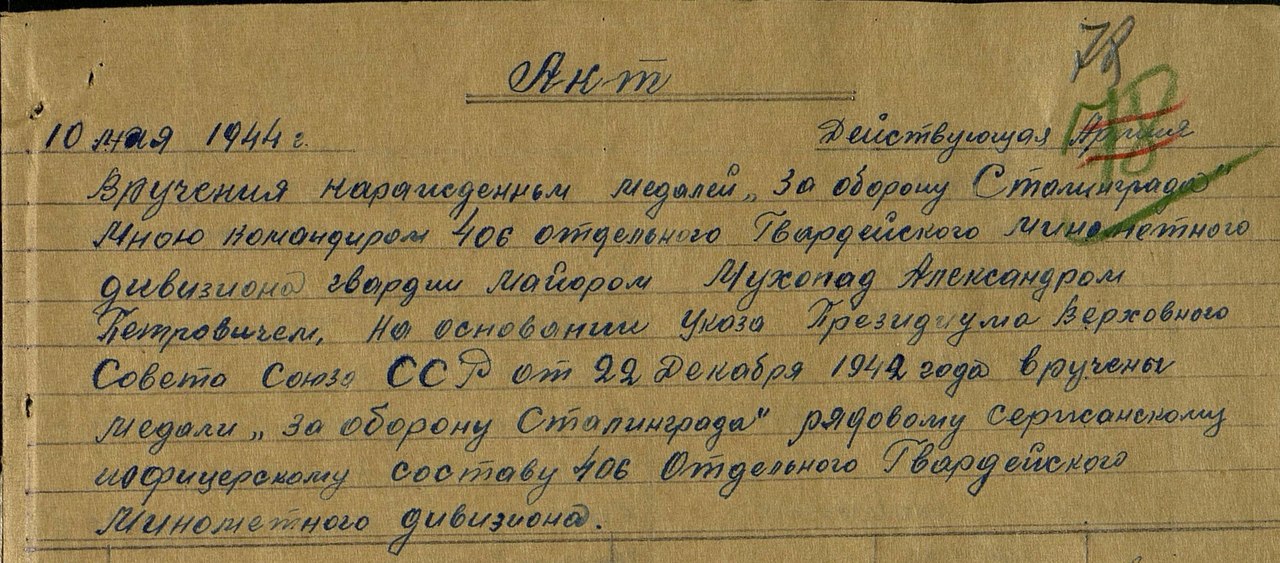 Акт
78
78
10 мая 1944 г.
Действующая Армия
Вручения награжденным медалей „За оборону Сталинграда"
Мною командиром 406 отдельного Гвардейского минометного
дивизиона гвардии майором Мухопад Александром
Петровичем, на основании Указа Президиума Верховного
Совета Союза ССР от 22 Декабря 1942 года вручены
медали „За оборону Сталинграда" рядовому сержанскому
иофицерскому составу 406 Отдельного Гвардейского
Минометного дивизиона.